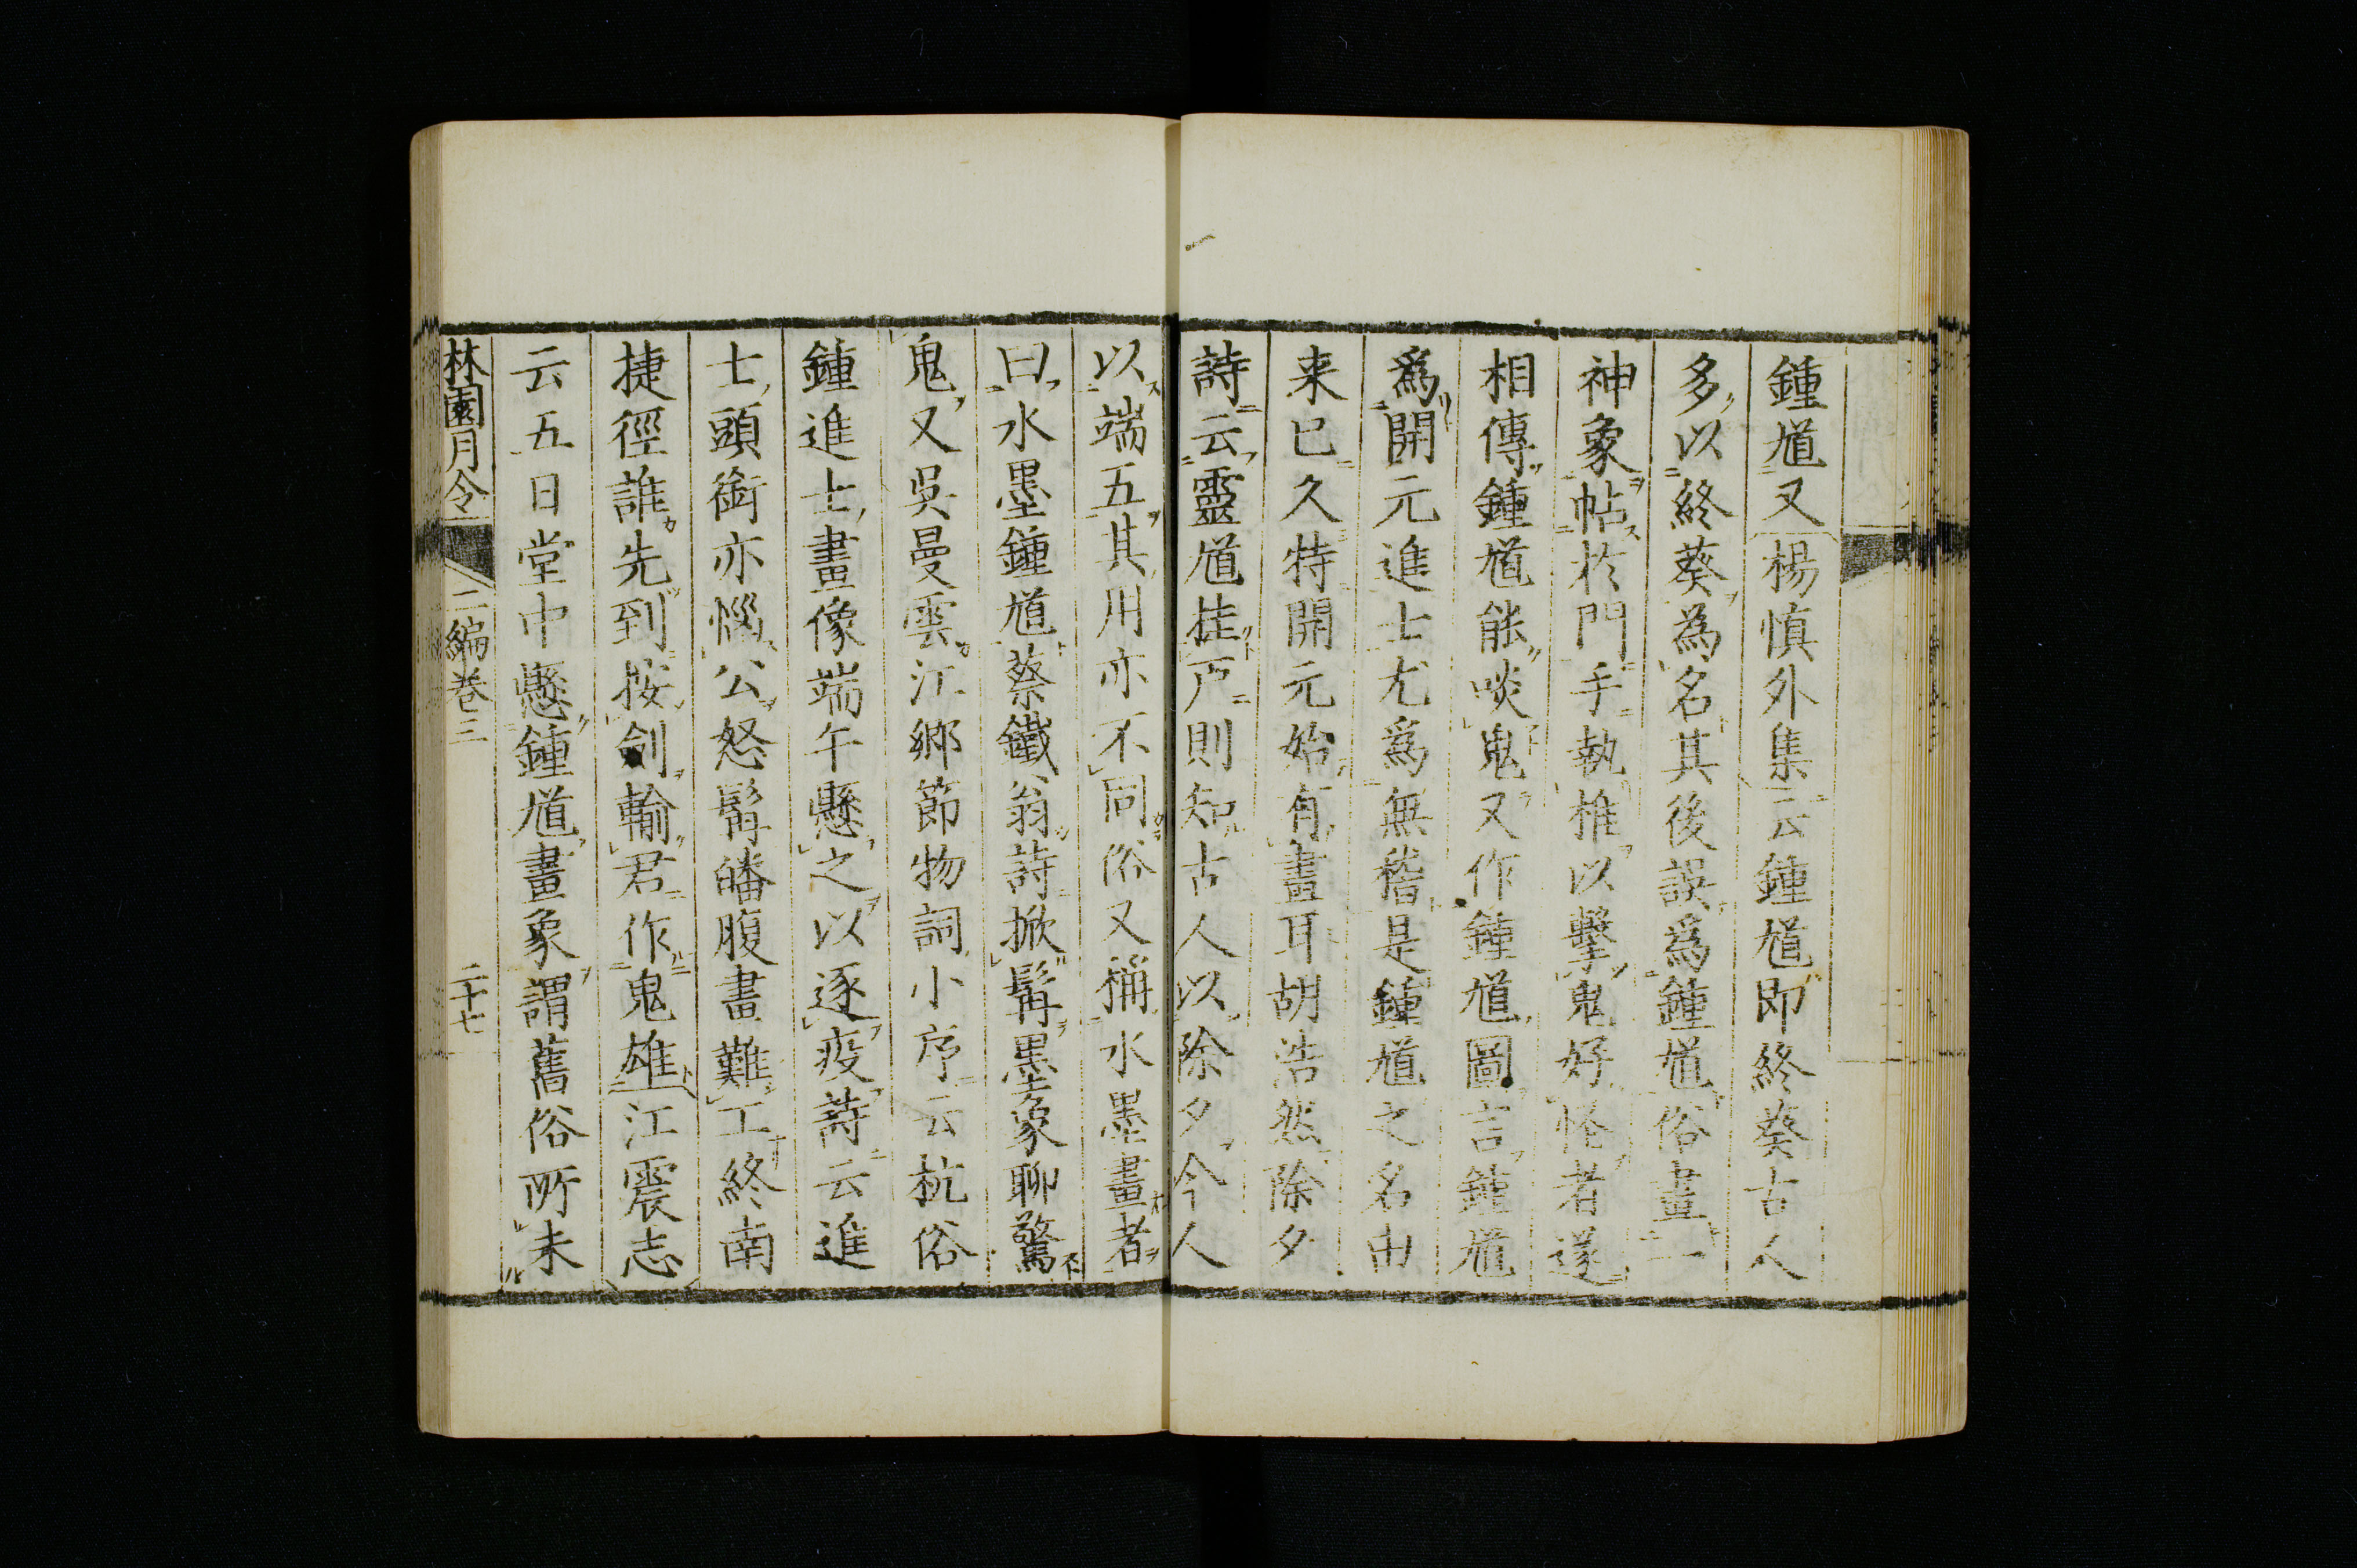 鍾馗又楊慎外集云鍾馗即終葵古人
多以終葵為名其後誤爲鍾馗俗畫一
神象帖於門手執椎以擊鬼好怪者遂
相傳鍾馗能啖鬼又作鍾馗圖言鍾馗
爲開元進士尤爲無稽是鍾馗之名由
来已久特開元始有畫耳胡浩然除夕
詩云靈馗挂戸則知古人以除夕今人
以端五其用亦不同俗又稱水墨畫者
曰水墨鍾馗蔡鐵翁詩掀髯墨象聊驚
鬼又吳曼雲江鄉節物詞小序云杭俗
鍾進士畫像端午懸之以逐疫詩云進
士頭銜亦惱公怒髯皤腹畫難工終南
捷徑誰先到按劍輸君作鬼雄江震志
云五日堂中懸鍾馗畫象謂舊俗所未
林園月令 二編卷三 二十七